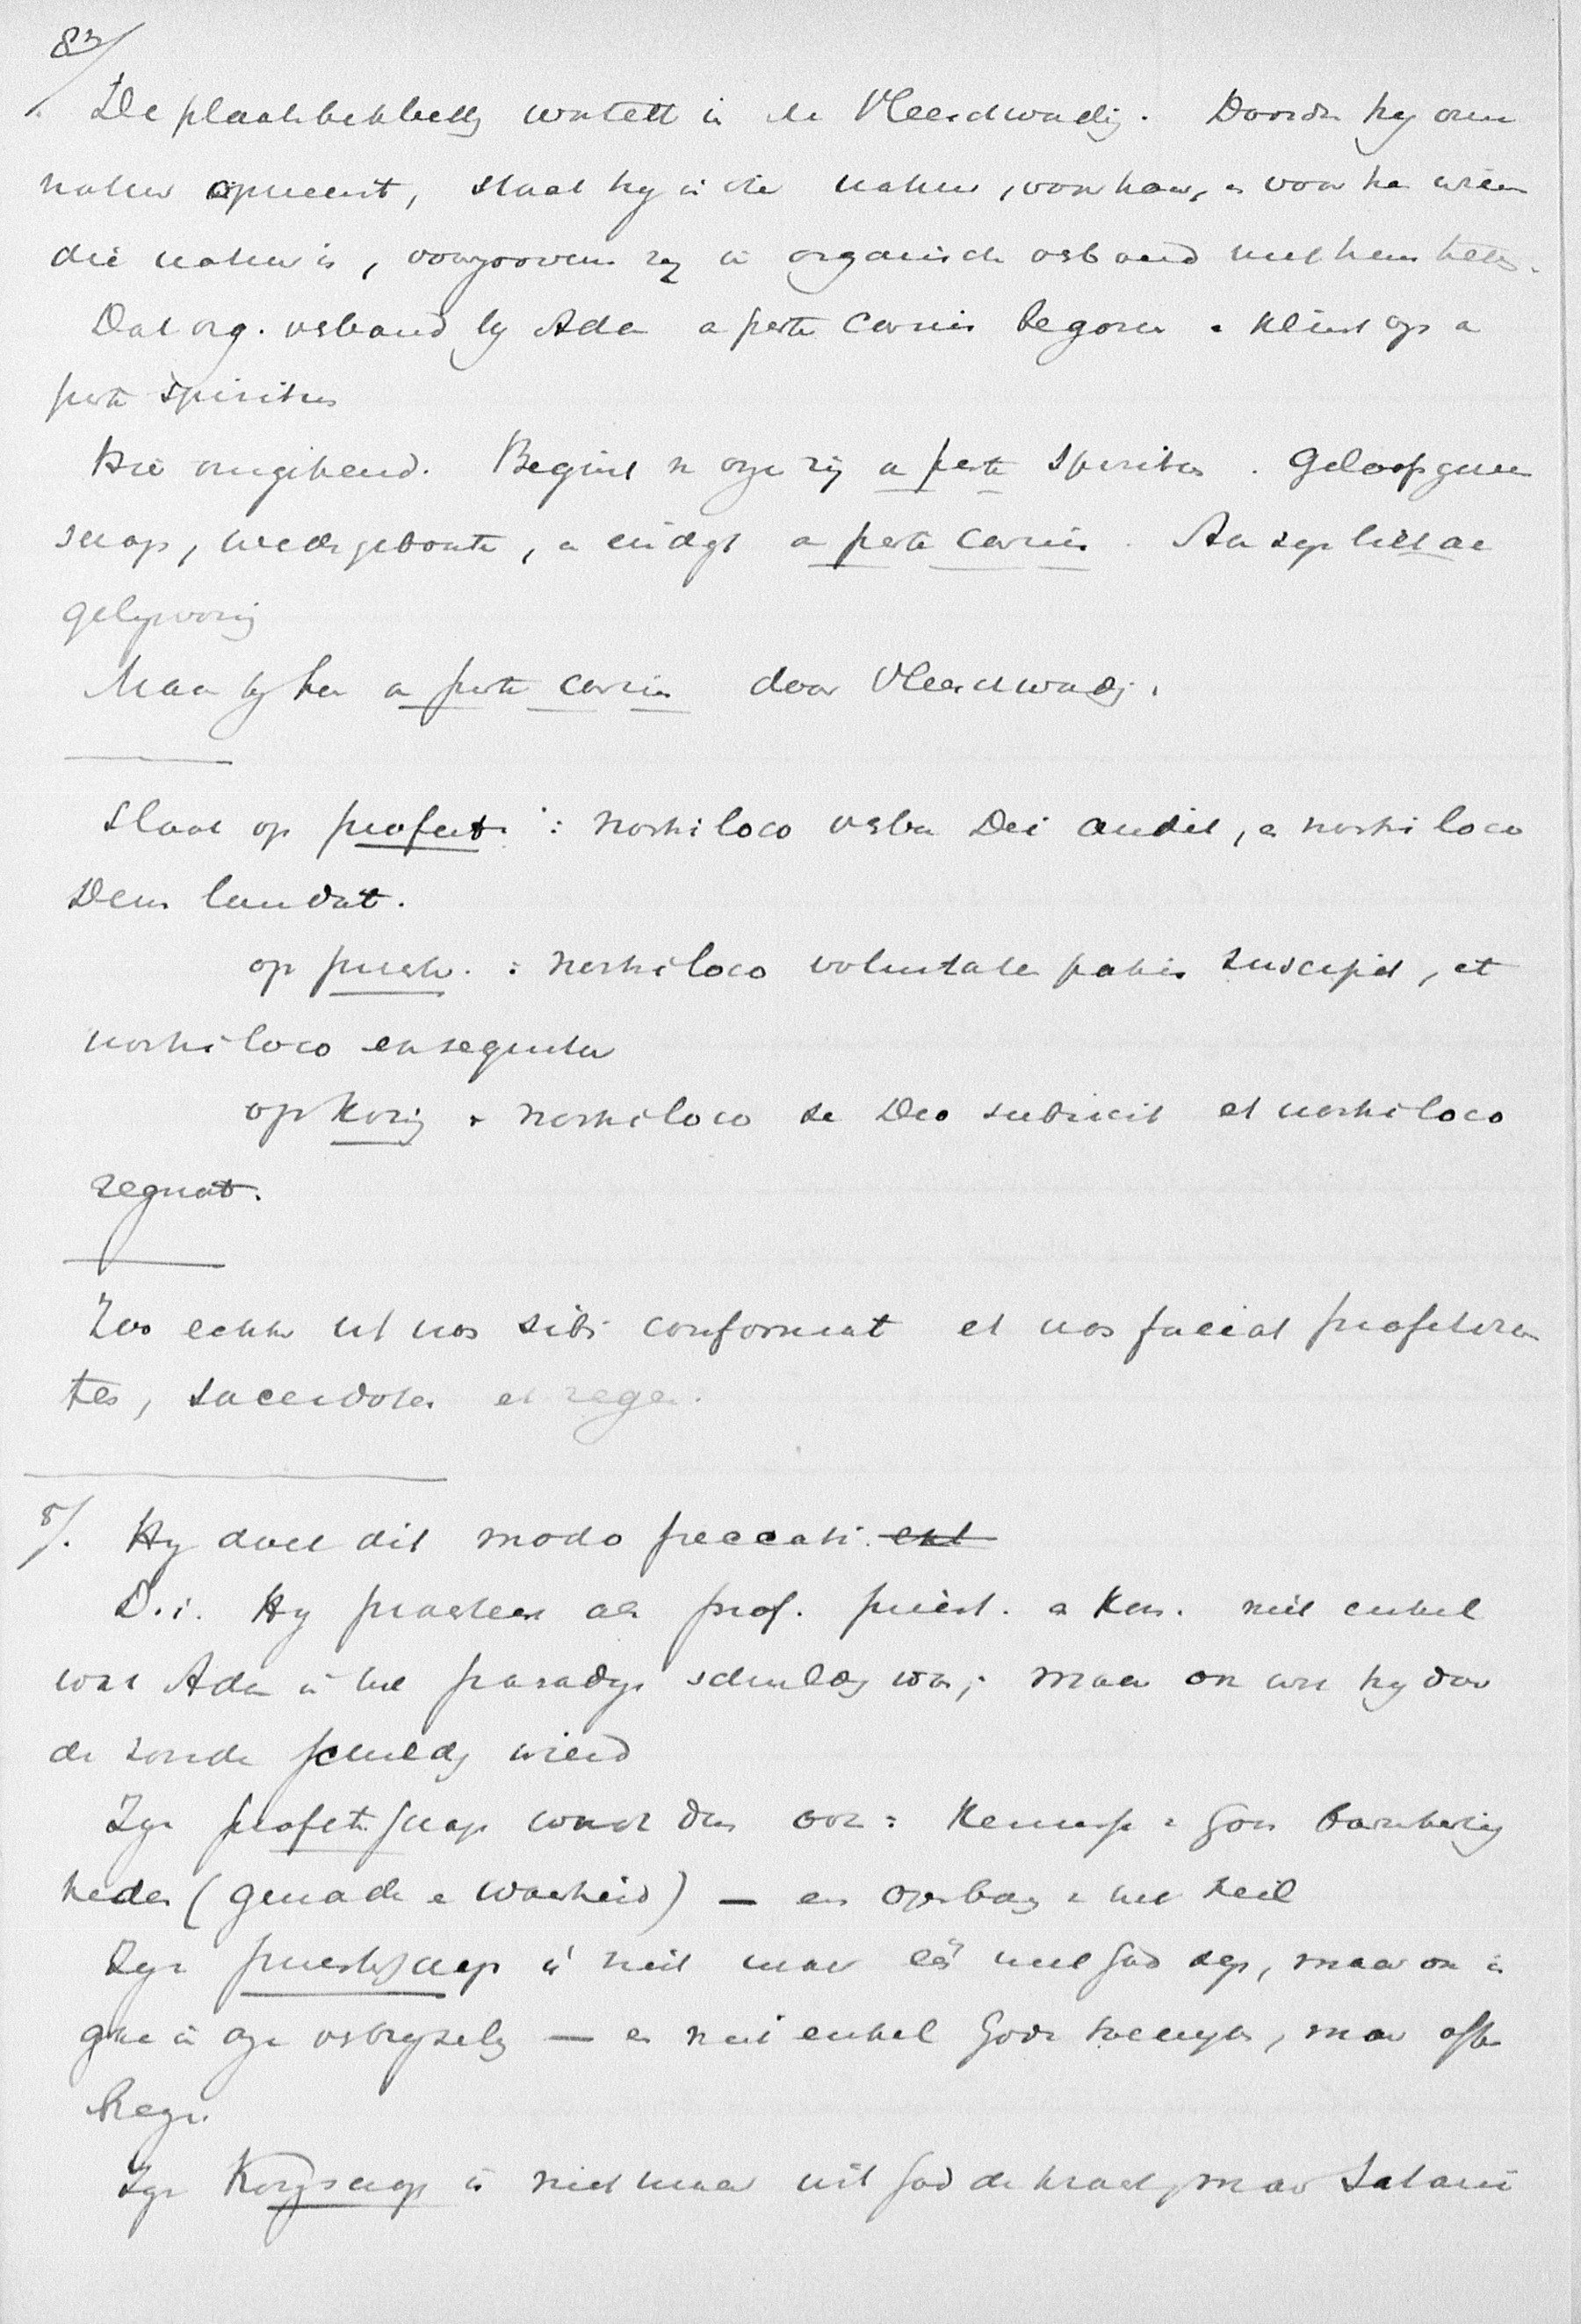 83/
De plaatsbekleedg wortelt in de Vleeschwording. Doordn hy onze
natuur aanneemt, staat hy in die natuur, voor haar, en voor hen wier
die natuur is, voorzoover zy in organisch verband met hem treden.
Dat org. verband by Adam a parte carnis begonnen. Klimt op a
parte Spiritus
Hier omgekeerd. Begint v onze zij a parte Spiritus. Geloofsgemeen
schap, wedergeboorte, en eindigt a parte carnis. An zyn lichaam
gelykvormig
Maar by hem a parte carnis door Vleeschwordg.
Slaat op profeet: nostri loco verba Dei audit, en nostri loco
Deum laudat.
op priester.: nostri loco voluntatem patris suscipit, et
nostri loco exsequitur
op Koning. nostri loco se Deo subiicit et nostri loco
regnat.
Zoo echter ut nos sibi conformat et nos faciat profeteren
tes, sacerdotes et reges.
8/. Hy doet dit modo peccati.
D.i. Hy praesteert als prof. priest. en Kon. niet enkel
wat Adam in het paradys schuldig was; maar ook wat hy door
de zonde schuldig wierd
Zyn profetschap wordt dus ook: Kennisse v Gods barmhartig
heden (genade en waarheid) — en openbarg v het heil
Zyn priesterschap is niet maar één met God zyn, maar ook in
gaan in onze verbryzeling — en niet enkel Gode toewyden, maar offer
brengen.
Zyn Koningschap is niet maar uit God de kracht, maar Satani